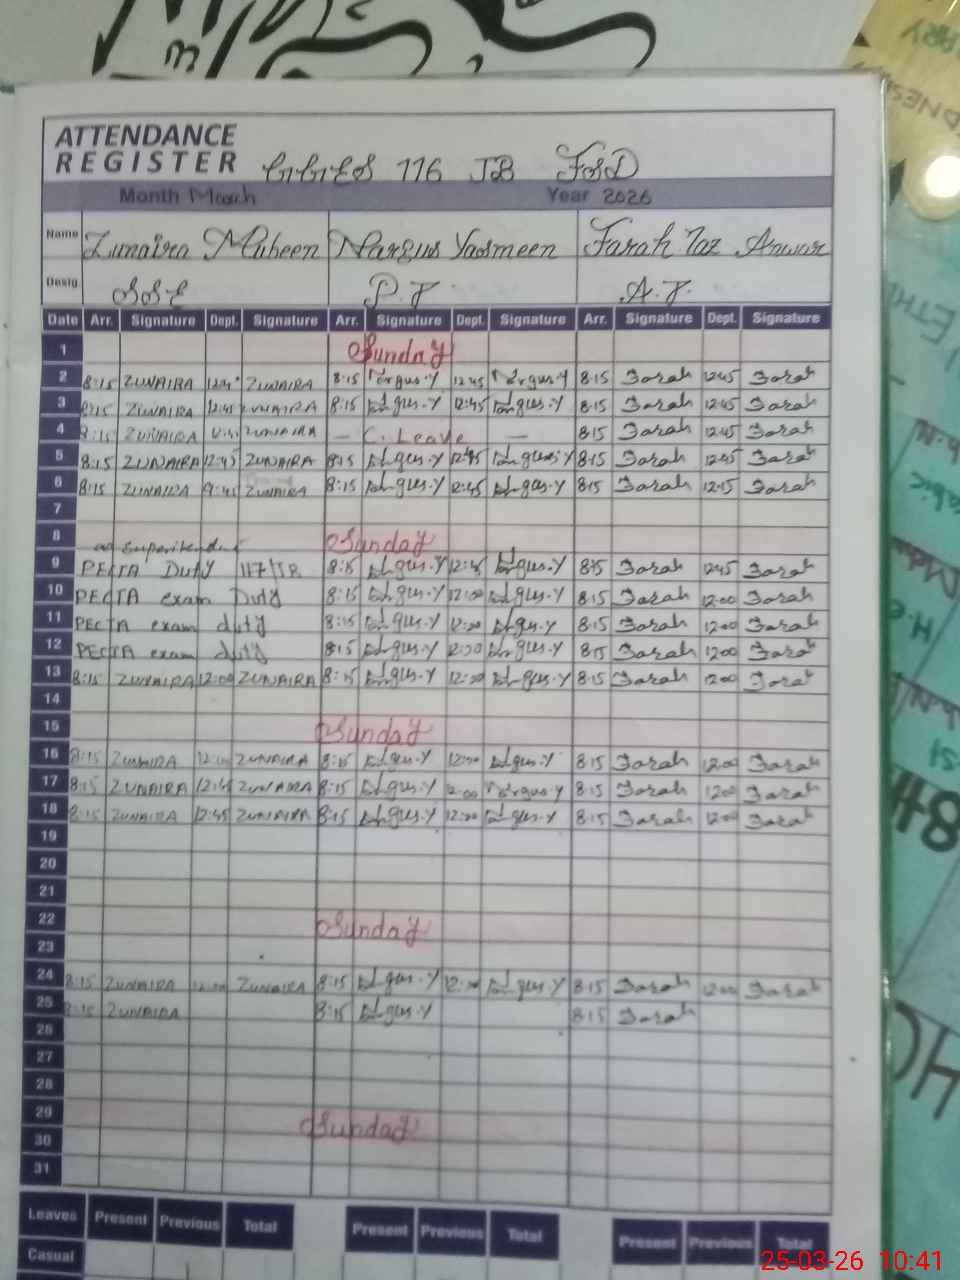 ATTENDANCE
REGISTER GGES 116 JB FSD
Month March Year 2026
Name Zunaira Maheen Nargus Yasmeen Farah Naz Anwar
Desig. SSE P.T A.T.
Date Arr. Signature Dept. Signature Arr. Signature Dept. Signature Arr. Signature Dept. Signature
1 Sunday
2 8:15 ZUNAIRA 12:45 ZUNAIRA 8:15 Nargus.Y 12:45 Nargus.Y 8:15 Farah 12:45 Farah
3 8:15 ZUNAIRA 12:45 ZUNAIRA 8:15 Nargus.Y 12:45 Nargus.Y 8:15 Farah 12:45 Farah
4 8:15 ZUNAIRA 12:45 ZUNAIRA — C. Leave — 8:15 Farah 12:45 Farah
5 8:15 ZUNAIRA 12:45 ZUNAIRA 8:15 Nargus.Y 12:45 Nargus.Y 8:15 Farah 12:45 Farah
6 8:15 ZUNAIRA 9:45 ZUNAIRA 8:15 Nargus.Y 12:45 Nargus.Y 8:15 Farah 12:15 Farah
7
8 Sunday
as
9 PECTA Duty 117/JB 8:15 Nargus.Y 12:45 Nargus.Y 8:15 Farah 12:45 Farah
10 PECTA exam Duty 8:15 Nargus.Y 12:00 Nargus.Y 8:15 Farah 12:00 Farah
11 PECTA exam duty 8:15 Nargus.Y 12:00 Nargus.Y 8:15 Farah 12:00 Farah
12 PECTA exam duty 8:15 Nargus.Y 12:00 Nargus.Y 8:15 Farah 12:00 Farah
13 8:15 ZUNAIRA 12:00 ZUNAIRA 8:15 Nargus.Y 12:00 Nargus.Y 8:15 Farah 12:00 Farah
14
15 Sunday
16 8:15 ZUNAIRA 12:00 ZUNAIRA 8:15 Nargus.Y 12:00 Nargus.Y 8:15 Farah 12:00 Farah
17 8:15 ZUNAIRA 12:45 ZUNAIRA 8:15 Nargus.Y 12:00 Nargus.Y 8:15 Farah 12:00 Farah
18 8:15 ZUNAIRA 12:45 ZUNAIRA 8:15 Nargus.Y 12:00 Nargus.Y 8:15 Farah 12:00 Farah
19
20
21
22 Sunday
23
24 8:15 ZUNAIRA 12:00 ZUNAIRA 8:15 Nargus.Y 12:00 Nargus.Y 8:15 Farah 12:00 Farah
25 8:15 ZUNAIRA 8:15 Nargus.Y 8:15 Farah
26
27
28
29 Sunday
30
31
Leaves Present Previous Total Present Previous Total Present Previous Total
Casual
25-03-26 10:41